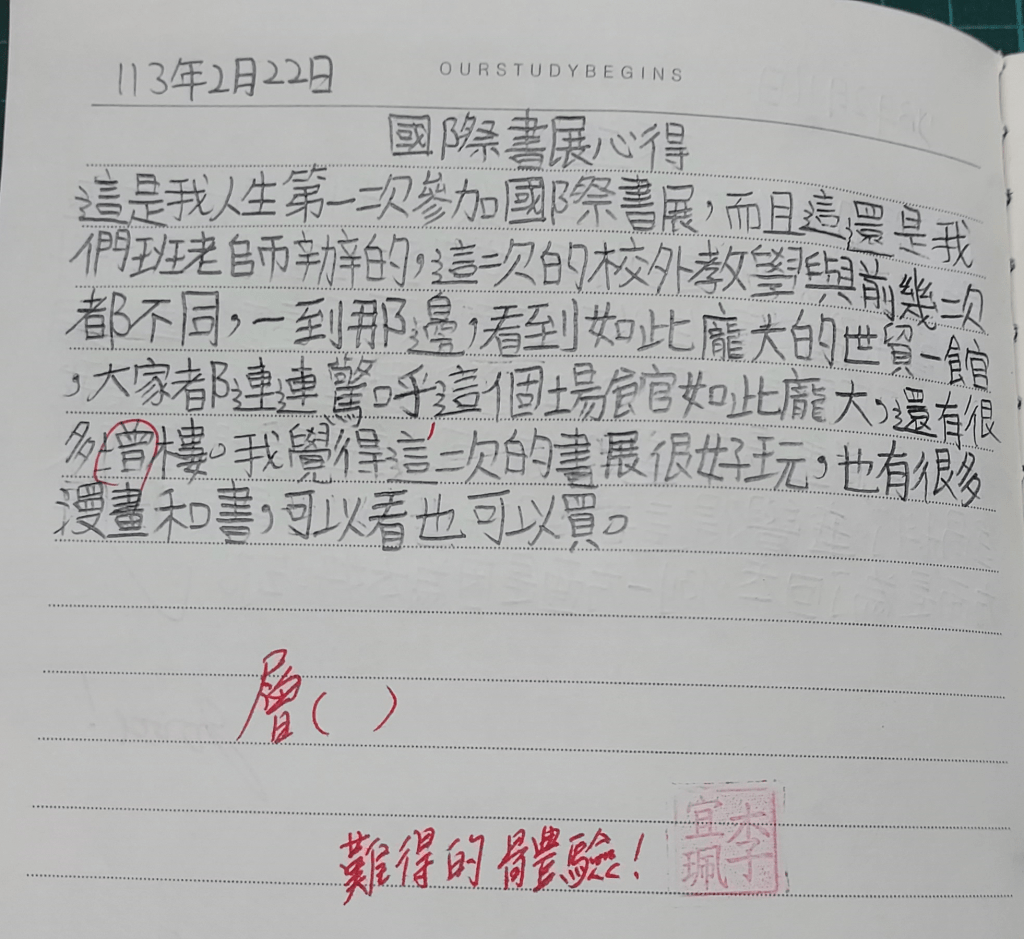 113年2月22日
OURSTUDYBEGINS
國際書展心得
這是我人生第一次參加國際書展,而且這還是我
們班老師辦的,這次的校外教學與前幾次
都不同,一到那邊,看到如此龐大的世貿一館
,大家都連連驚呼這個場館如此龐大,還有很
多曾樓。我覺得這次的書展很好玩,也有很多
漫畫和書,可以看也可以買。
層( )
難得的體驗!
李宜珮